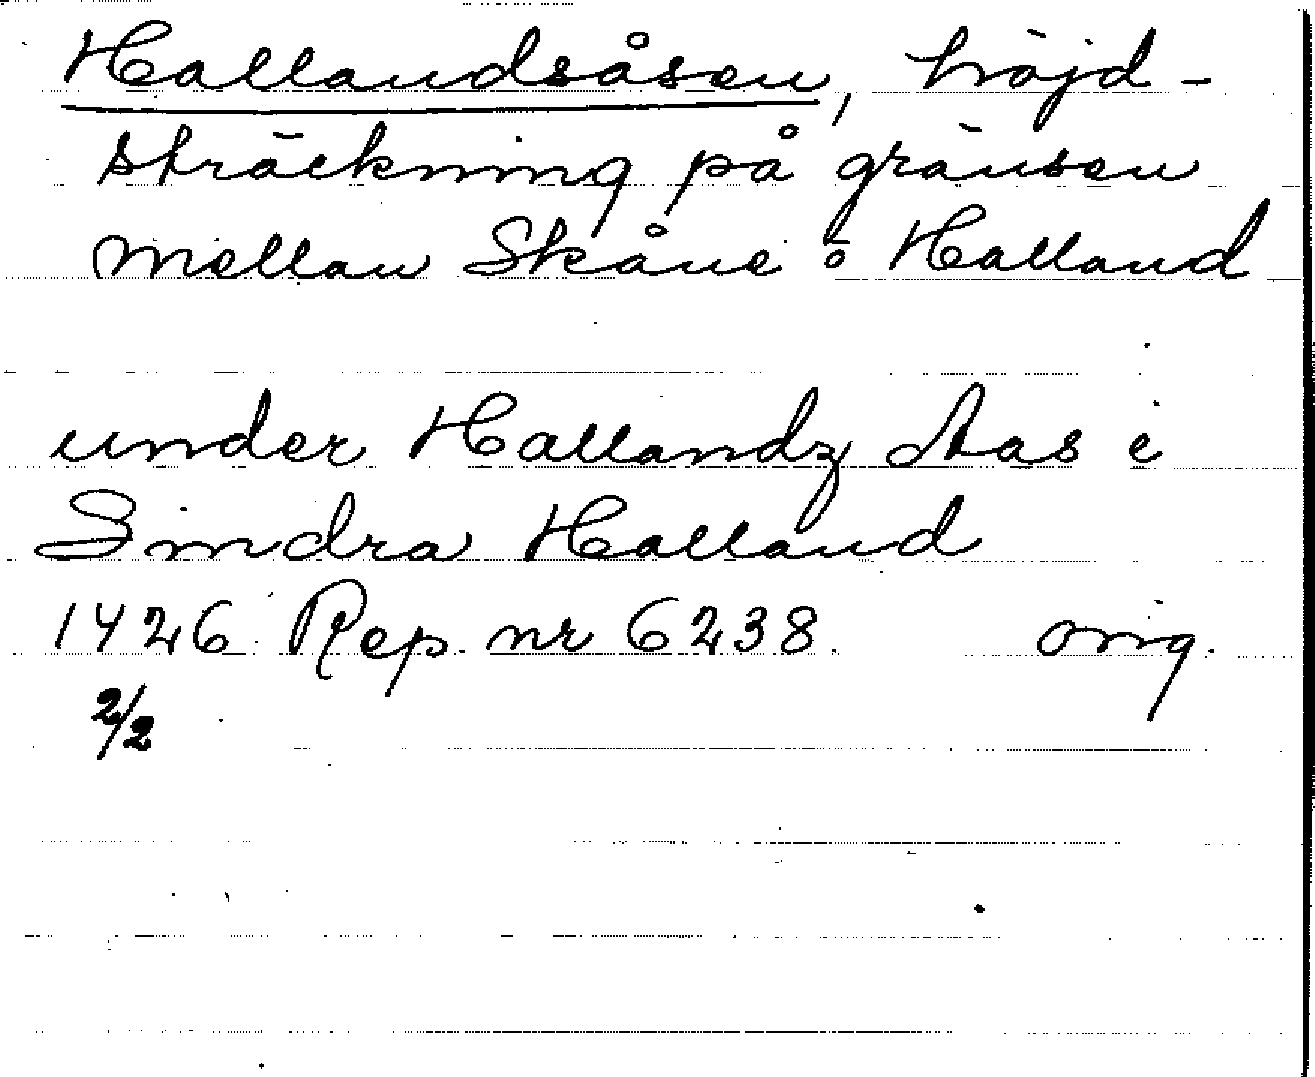 Hallandsåsen, höjd-
sträckning på gränsen
mellan Skåne o Halland
under Hallandz Aas i
Sindra Halland
1426 Rep. nr 6238. orig.
2/2